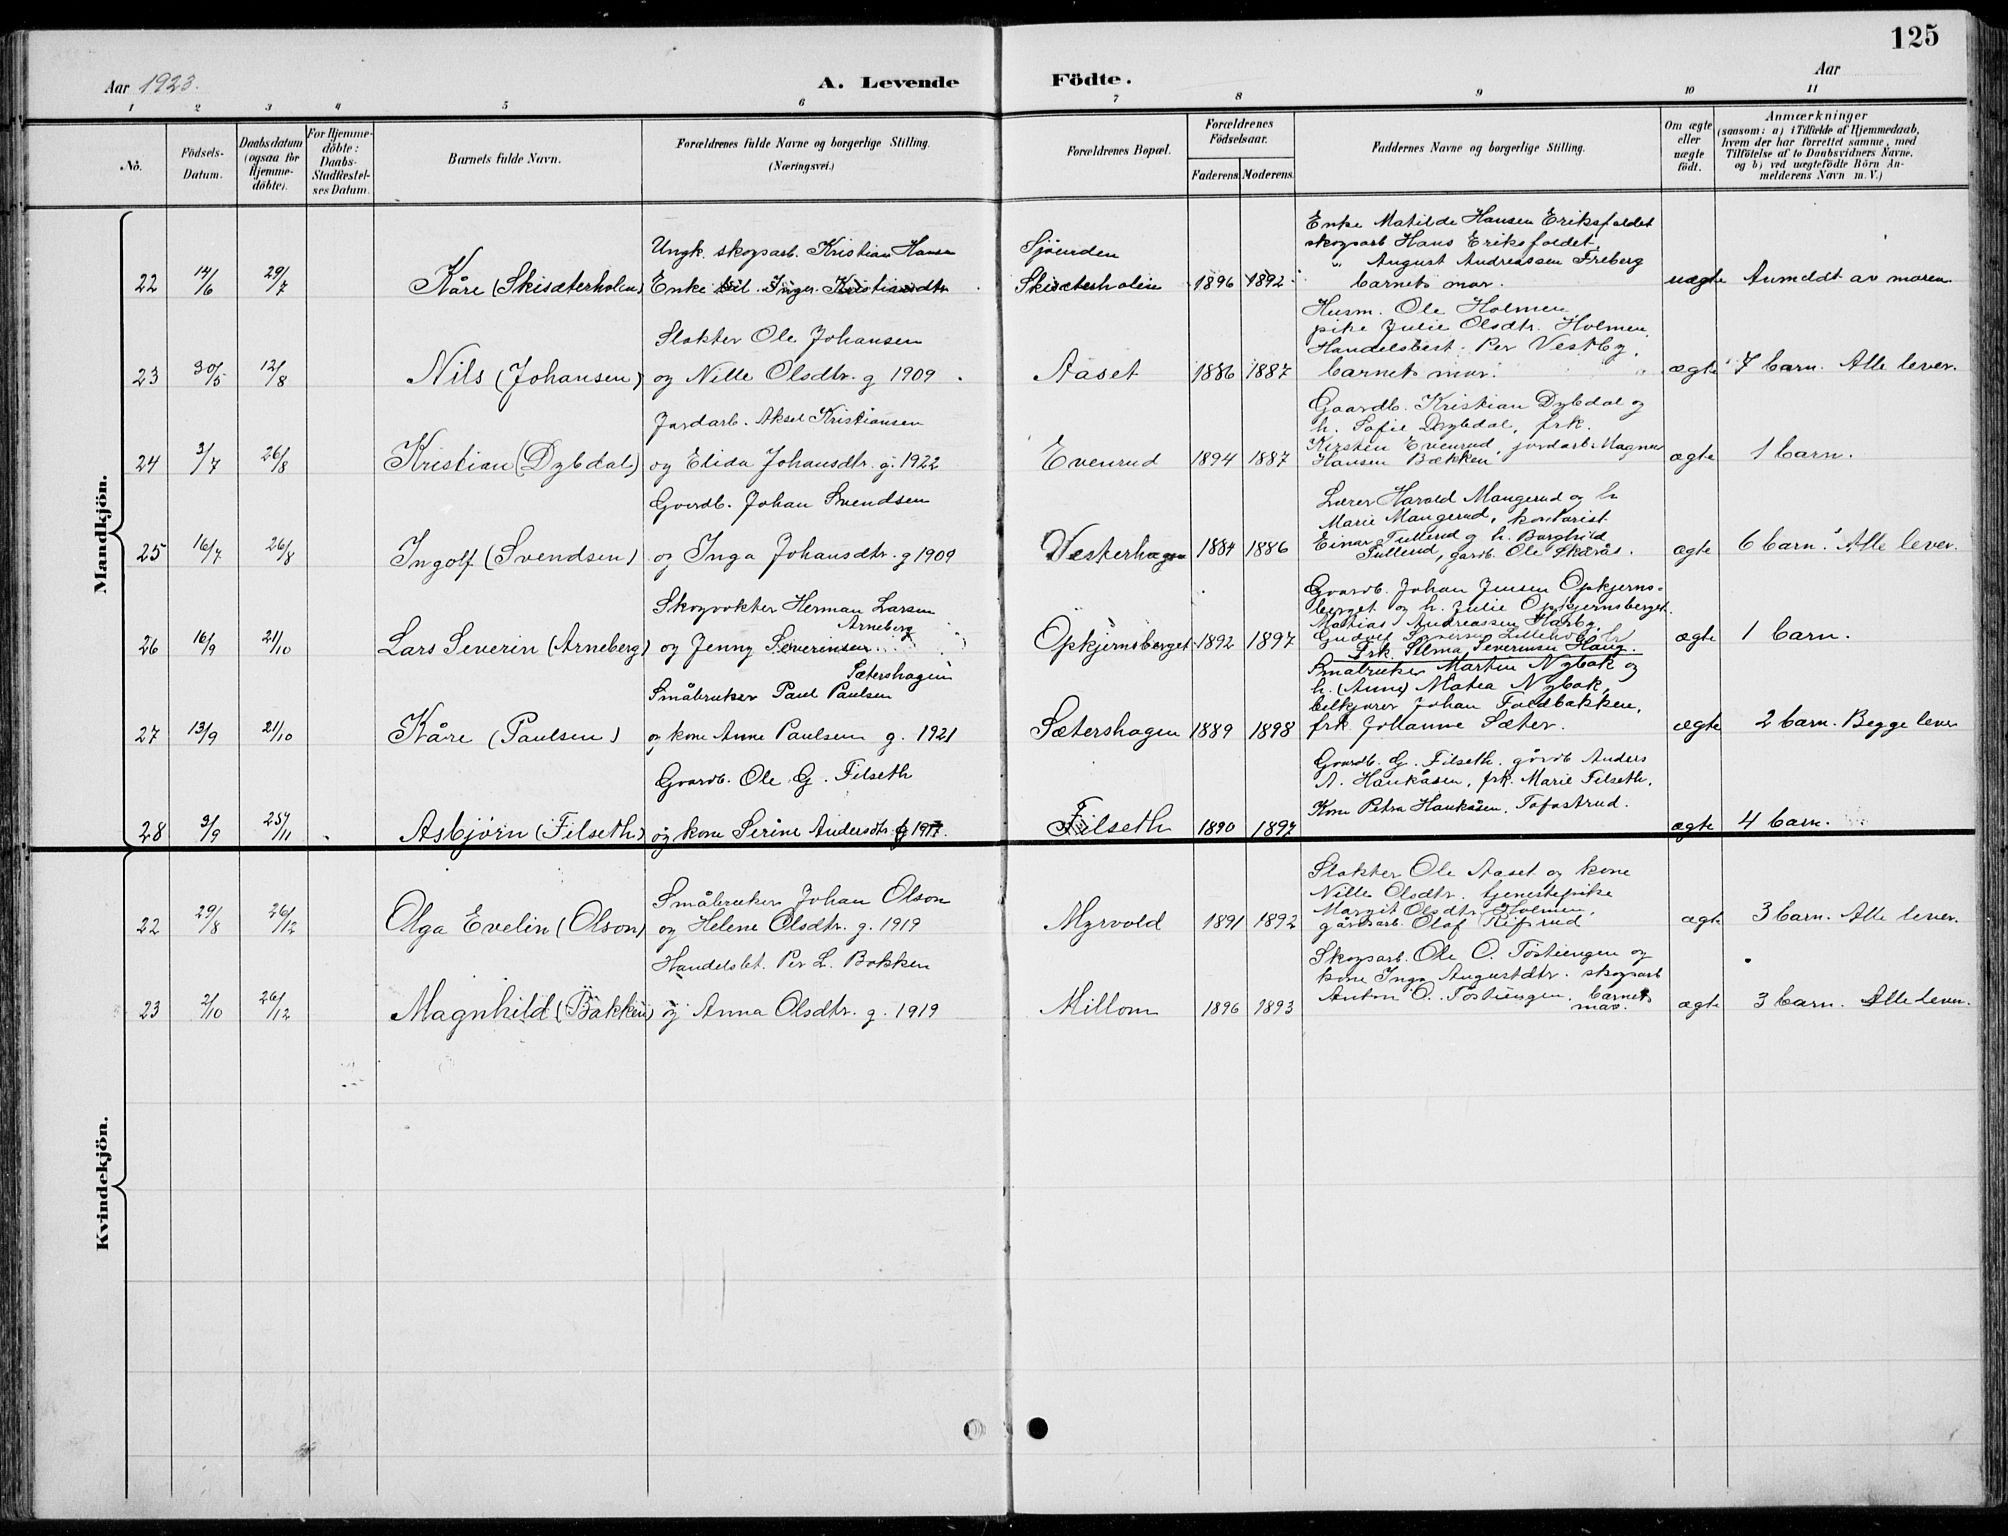 125
Aar 1923.
A. Levende
Födte.
Aar
1 2 3 4 5 6 7 8 9 10 11
No.
Födsels-
Datum.
Daabsdatum
(ogsaa for
Hjemme-
döbte).
For Hjemme-
döbte:
Daabs-
Stadfæstel-
ses Datum.
Barnets fulde Navn.
Forældrenes fulde Navne og borgerlige Stilling.
(Næringsvei.)
Forældrenes Bopæl.
Forældrenes
Födselsaar.
Faderens. Moderens.
Faddernes Navne og borgerlige Stilling.
Om ægte
eller
uægte
födt.
Anmærkninger
(saasom: a) i Tilfælde af Hjemmedaab,
hvem der har forrettet samme, med
Tilföielse af to Daabsvidners Navne,
og b) ved uægtefödte Börn An-
melderens Navn m. V.)
Mandkjön.
22 14/6 29/7 Kåre (Skisæterholen)
Ungk. skogsarb. Kristian Hansen
Enke Inger Kristiansdtr
Sjøenden
Skisæterholen 1896 1892
Enke Matilde Hansen Eriksfaldet
skogsarb Hans Eriksfaldet,
" August Andreassen Freberg
barnets mor.
uægte Anmeldt av moren
23 30/5 12/8 Nils (Johansen)
Slakter Ole Johansen
og Nille Olsdtr. g 1909
Aaset 1886 1887
Husm. Ole Holmen,
pike Julie Olsdtr. Holmen,
Handelsbest. Per Vestby,
barnets mor.
ægte 7 barn. Alle lever.
24 3/7 26/8 Kristian (Dybdal)
Jordarb. Aksel Kristiansen
og Elida Johansdtr. g. 1922
Evenrud 1894 1887
Gaardb. Kristian Dybdal og
h. Sofie Dybdal, frk.
Kirsten Evenrud, jordarb. Magnus
Hansen Bækken
ægte 1 barn.
25 16/7 26/8 Ingolf (Svendsen)
Gaardb. Johan Svendsen
og Inga Johansdtr. g 1909
Vesterhagen 1884 1886
Lærer Harald Mangerud og h
Marie Mangerud, kontorist
Einar Tullerud og h. Borghild
Tullerud, gardb. Ole Skærås.
ægte 6 barn. Alle lever.
26 16/9 21/10 Lars Severin (Arneberg)
Skogvokter Herman Larsen
Arneberg
og Jenny Severinsen
Opkjernsberget 1892 1897
Gaardb. Johan Jensen Opkjerns-
berget og h. Julie Opkjernsberget.
Mathias Andreassen
Frk. Selma Severinsen Haug.
ægte 1 barn.
27 13/9 21/10 Kåre (Paulsen)
Sætershagen
Småbruker Paul Paulsen
og kone Anne Paulsen g. 1921
Sætershagen 1889 1898
Småbruker Martin Nybak og
h. (Anne) Matea Nybak,
bilkjører Johan Foldbakken,
frk. Johanne Sæter.
ægte 2 barn. Begge lever
28 3/9 25/11 Asbjørn (Filseth)
Gaardb. Ole G. Filseth
og kone Serine Andersdtr. g 1917.
Filseth 1890 1897
Gaardb. G. Filseth. gårdb Anders
A. Haukåsen, frk. Marie Filseth,
Kone Petra Haukåsen, Tofastrud.
ægte 4 barn.
Kvindekjön.
22 29/8 26/12 Olga Evelin (Olson)
Småbruker Johan Olson
og Helene Olsdtr. g. 1919
Myrvold 1891 1892
Slakter Ole Aaset og kone
Nille Olsdtr. tjenestepike
Margit Olsdtr. Holmen,
gårdsarb. Olaf Rifsrud
ægte 3 barn. Alle lever.
23 2/10 26/12 Magnhild (Bakken)
Handelsbet. Per L. Bakken
og Anna Olsdtr. g. 1919
Millom 1896 1893
Skogsarb. Ole O. Tostiengen og
kone Inga Augustdtr. skogsarb
Anton O. Tostiengen, barnets
mor.
ægte 3 barn. Alle lever.